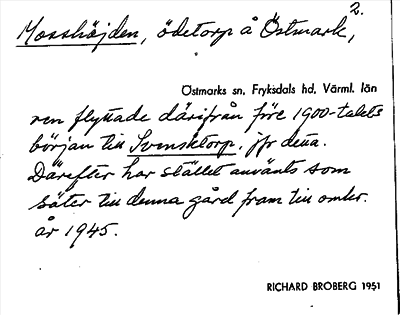 Mosshöjden, ödetorp å Östmark, 2.
Östmarks sn. Fryksdals hd. Värml. län
ren flyttade därifrån före 1900-talets
början till Svensktorp, jfr detta.
Därefter har stället använts som
säter till denna gård fram till omkr.
år 1945.
RICHARD BROBERG 1951